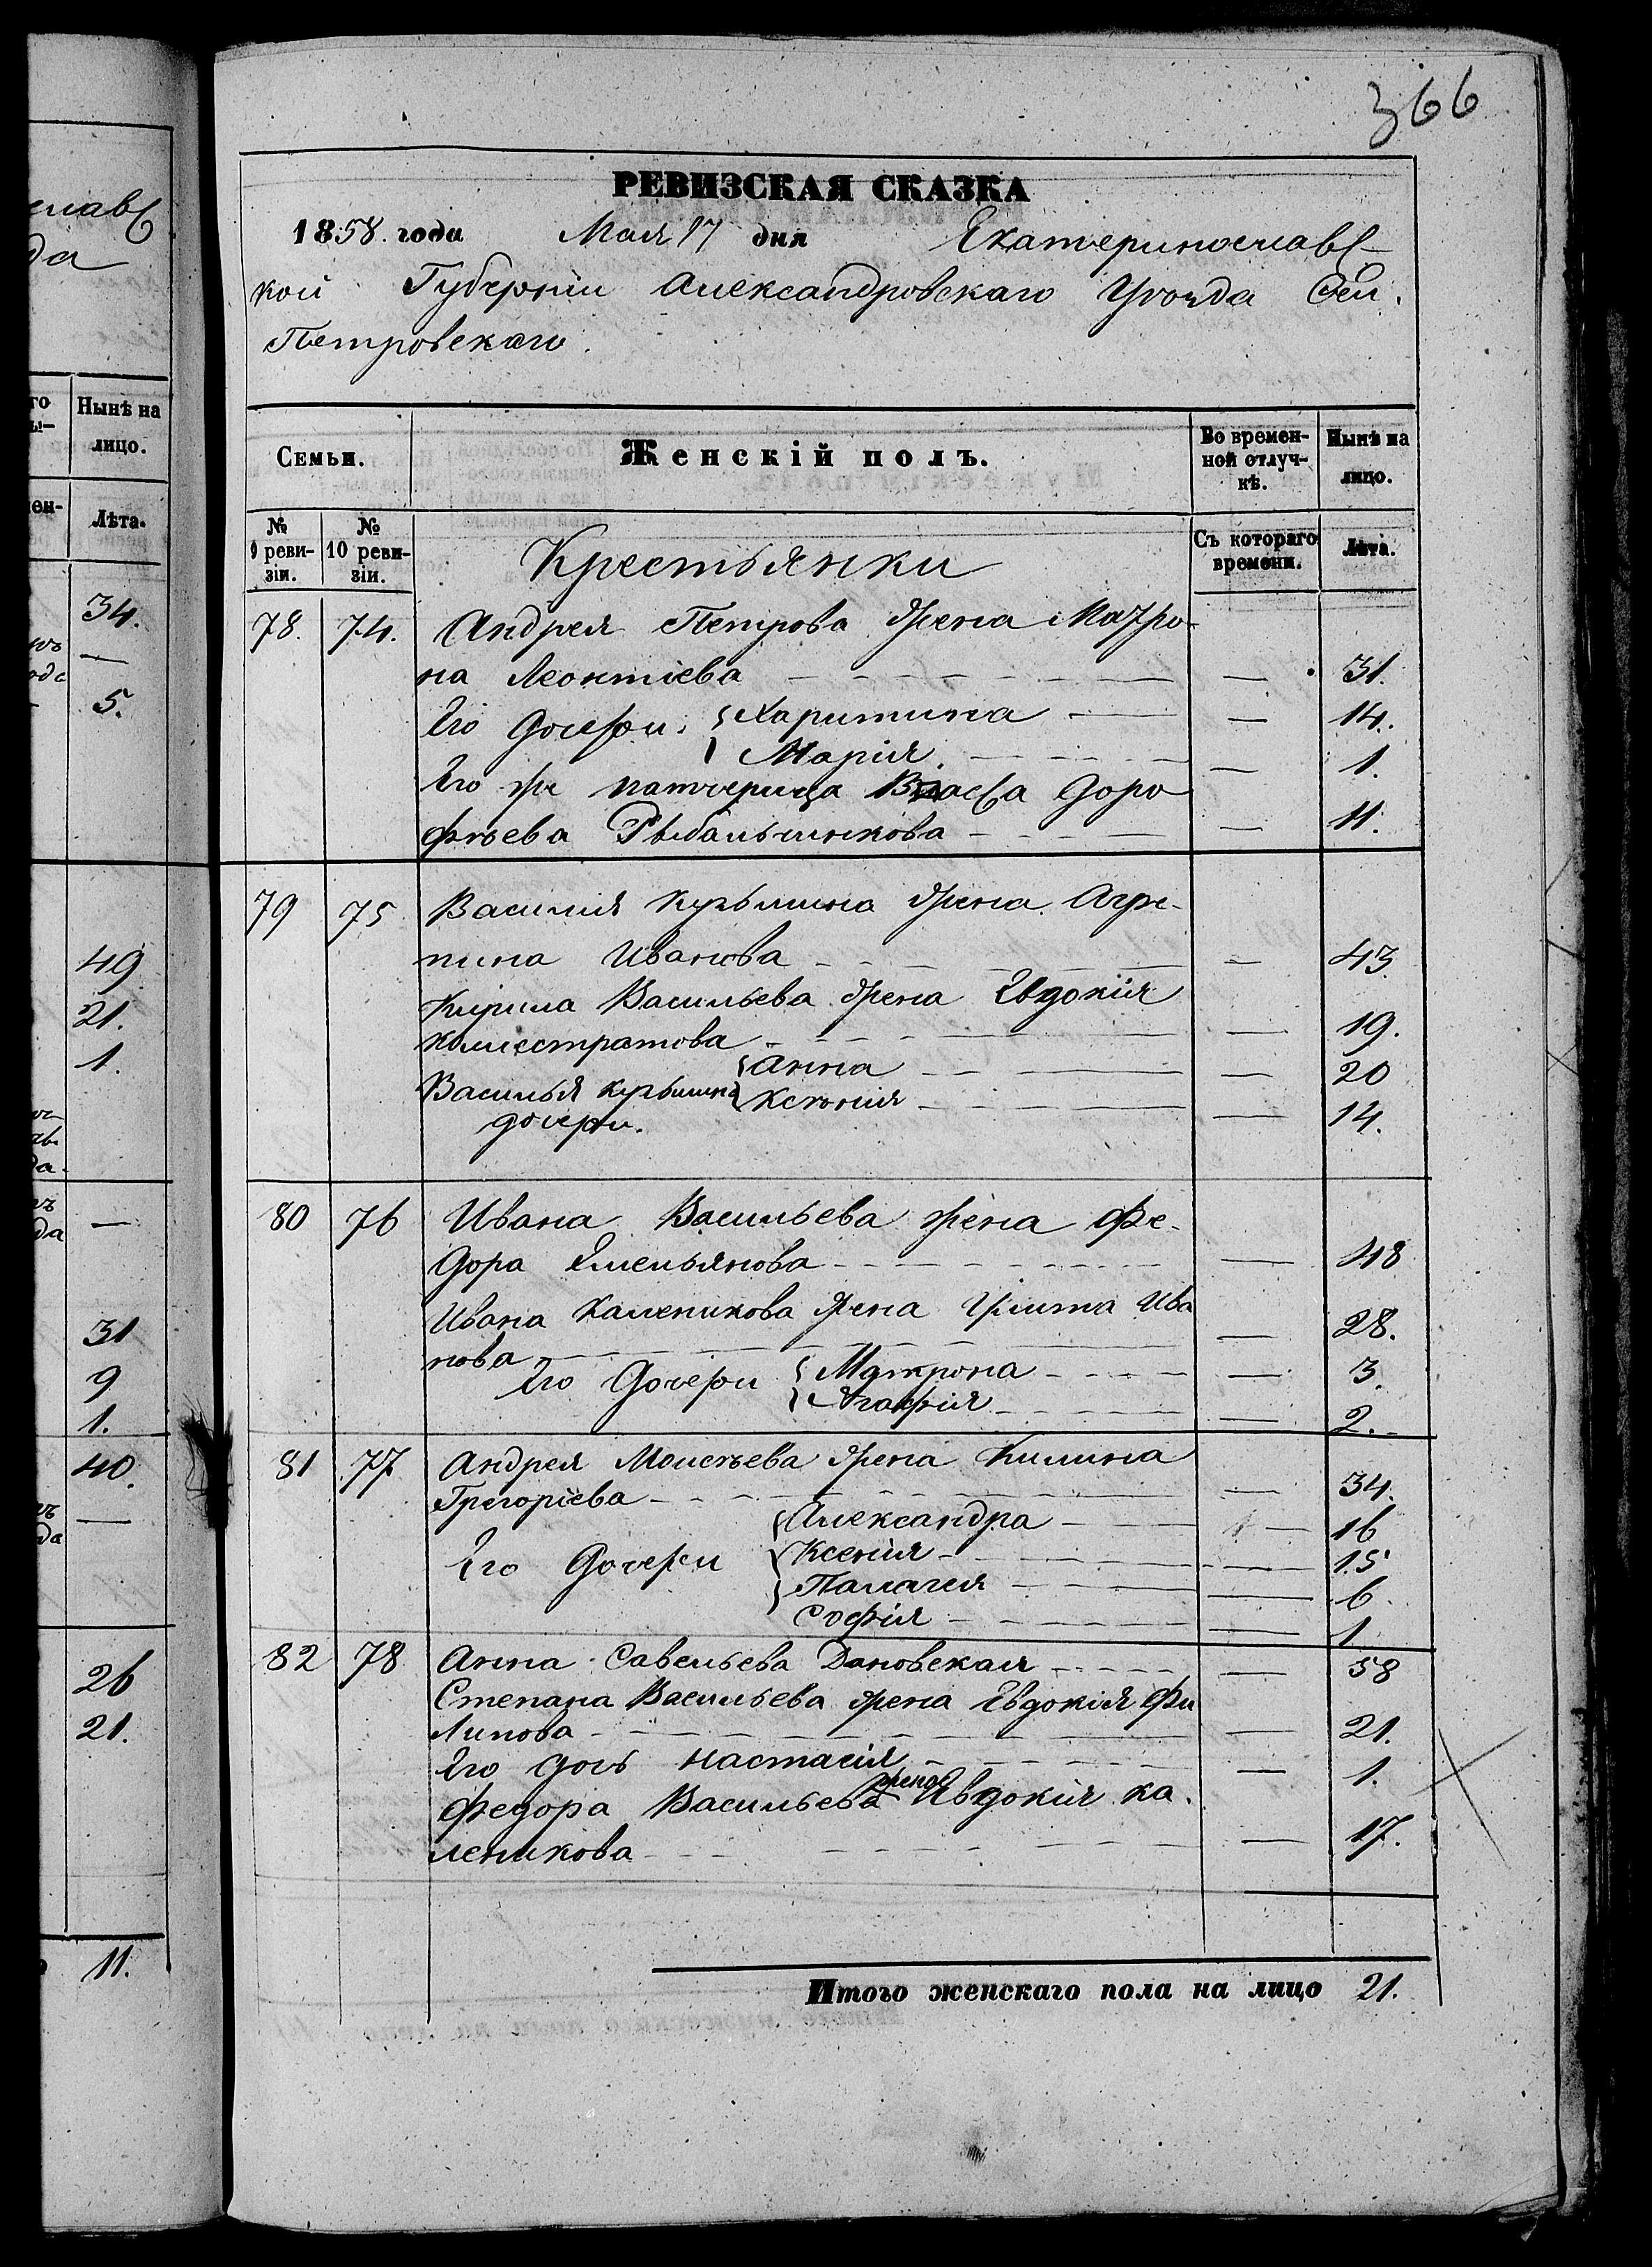 366
РЕВИЗСКАЯ СКАЗКА
1858. года Мая 17 дня Екатеринославс-
кой Губерніи Александровскаго Уѣзда Сел.
Петровскаго.
Семьи.
Женскій полъ.
Во времен-
ной отлуч-
кѣ.
Нынѣ на
лицо.
№
9 реви-
зіи.
№
10 реви-
зіи.
Съ котораго
времени.
Лѣта.
Крестьянки
78. 74. Андрея Петрова жена Матро-
на Леонтіева — 31.
Его дочери: Харитина — 14.
Марія. — 1.
Его же патчерица Власса Доро
фѣева Рыбальченкова — 11.
79 75 Василія Кузьмина жена Агре-
пина Иванова — 43
Кирила Васильева жена Евдокія
Калистратова — 19.
Анна — 20
Василья Кузьмина Ксѣнія — 14.
дочери.
80 76 Ивана Васильева жена Фе-
дора Емельянова — 48
Ивана Каленикова жена Улита Ива
нова — 28.
Его дочери Матрона — 3.
Агафія — 2.
81 77 Андрея Моисѣева жена Килина
Григоріева — 34.
Александра — 16
Его дочери Ксенія — 15
Палагея — 6.
Софія — 1
82 78 Анна Савельева Дановская — 58
Степана Васильева жена Евдокія Фи
липова — 21.
Его дочь Настасія — 1.
Федора Васильева жена Евдокія Ка-
леникова — 17.
Итого женскаго пола на лицо 21.
Нынѣ на
лицо.
Лѣта.
34.
—
5.
49
21.
1.
—
31
9
1.
40.
—
26
21.
11.